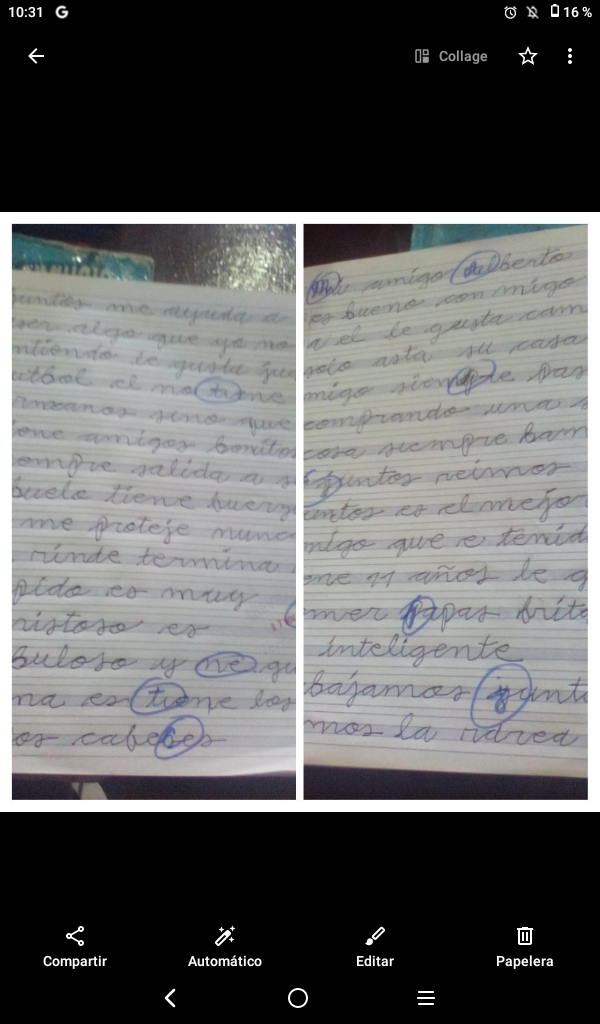 10:31 G 16 %
Collage
juntos me ayuda a
ser algo que yo no
ntiendo le gusta jug
utbol el no tiene
rmanos sino que
ene amigos bonitos
empre salida a s
buelo tiene buerz
me proteje nunc
rinde termina
pido es muy
ristoso es
buloso y ne gu
na es tiene los
os cafeses
Mi amigo Alberto
es bueno con migo
a el le gusta cam
solo asta su casa
migo siempre pas
comprando una s
cosa siempre bam
juntos reimos
untos es el mejor
migo que e tenid
ene 11 años le g
mer papas frita
inteligente
bájamos junt
mos la
Compartir
Automático
Editar
Papelera